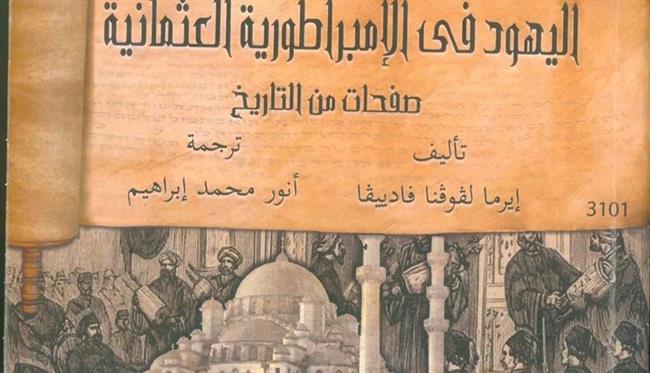 اليهود فى الإمبراطورية العثمانية
صفحات من التاريخ
تأليف
ترجمة
إيرما لڤوڤنا فادييڤا
أنور محمد إبراهيم
3101